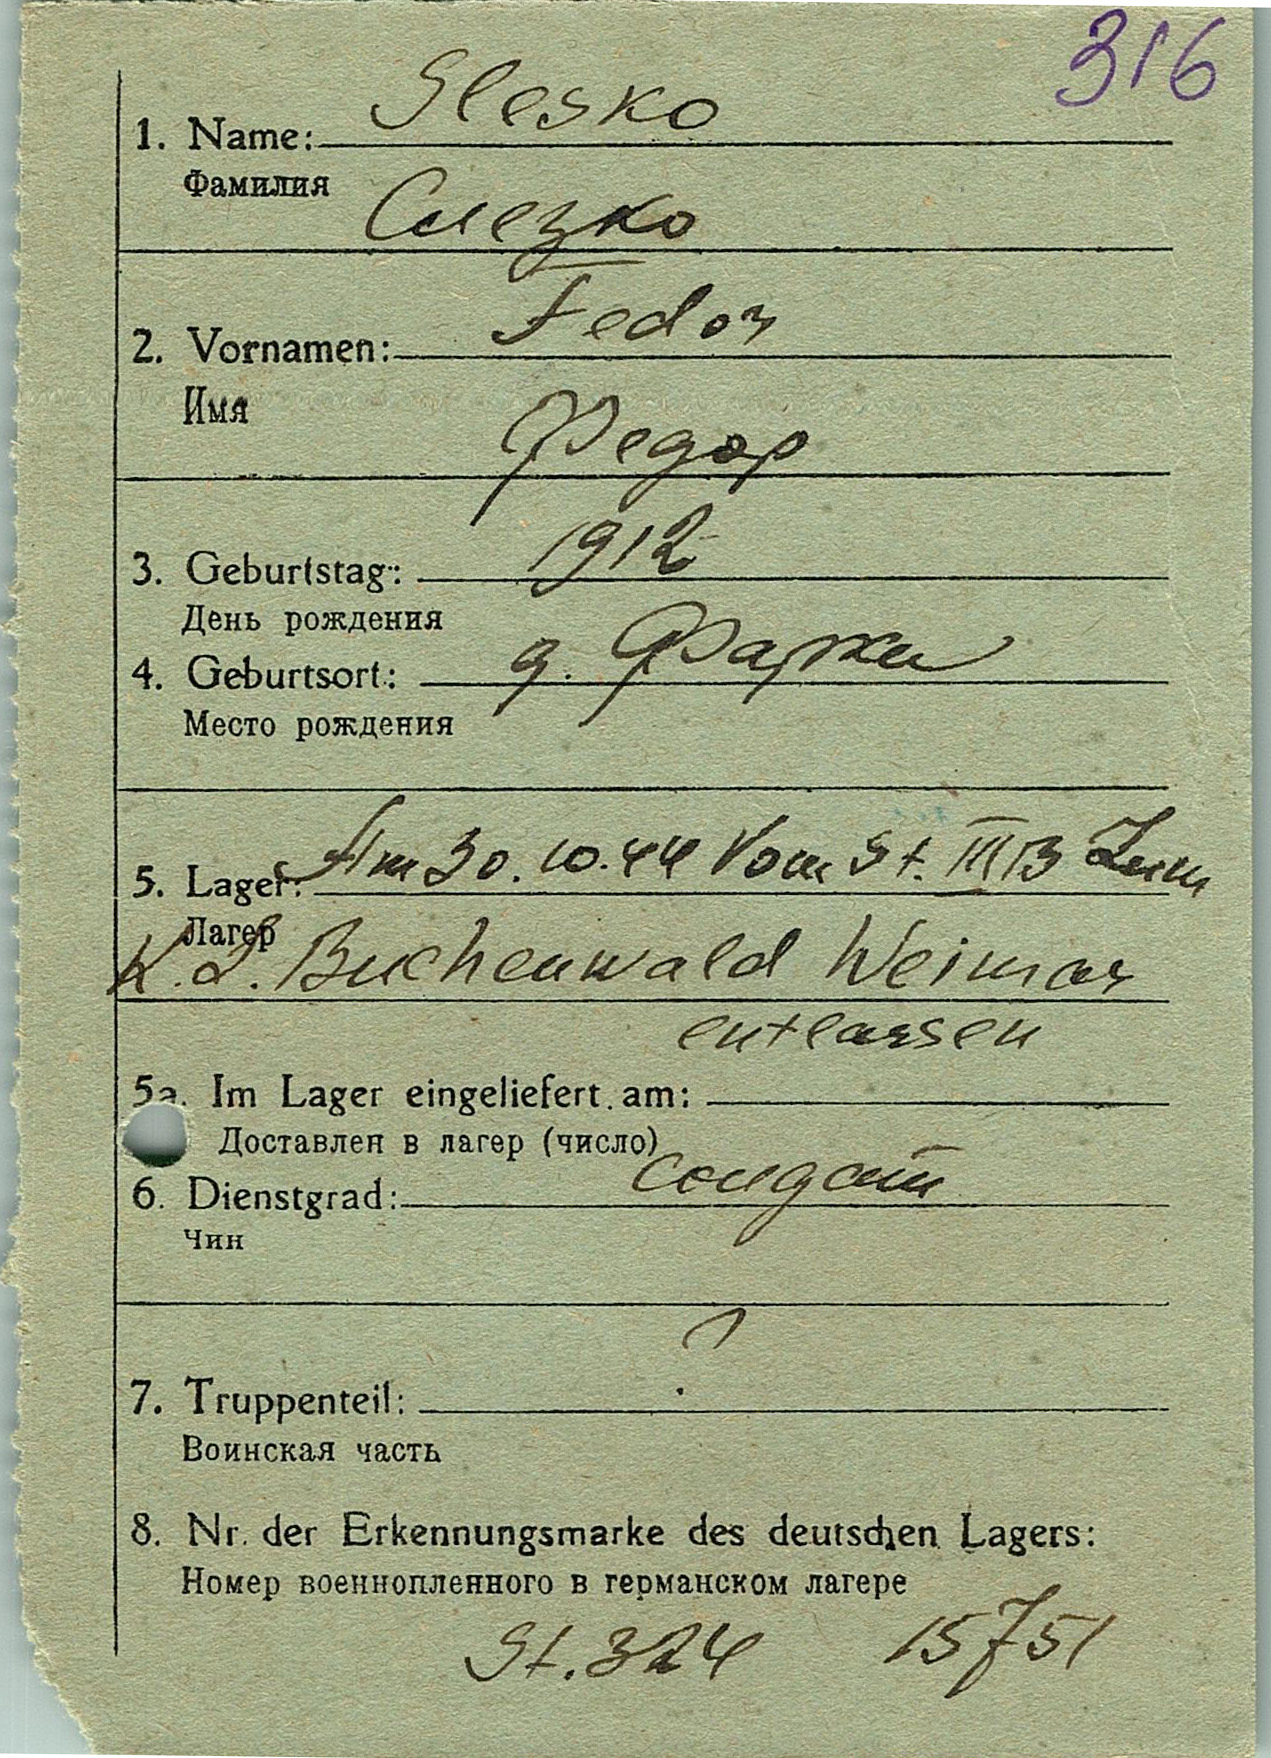 316
Slesko
1. Name:
Фамилия
Слезко
Fedor
2. Vornamen:
Имя
Федор
1912
3. Geburtstag:
День рождения
4. Geburtsort: д. Фарки
Место рождения
5. Lager: Am 30.10.44 Vom St. III B Zum
Лагер
K.L. Buchenwald Weimar
entlassen
5a. Im Lager eingeliefert am:
Доставлен в лагер (число)
6. Dienstgrad: солдат
Чин
7. Truppenteil:
Воинская часть
8. Nr. der Erkennungsmarke des deutschen Lagers:
Номер военнопленного в германском лагере
St. 324 15751